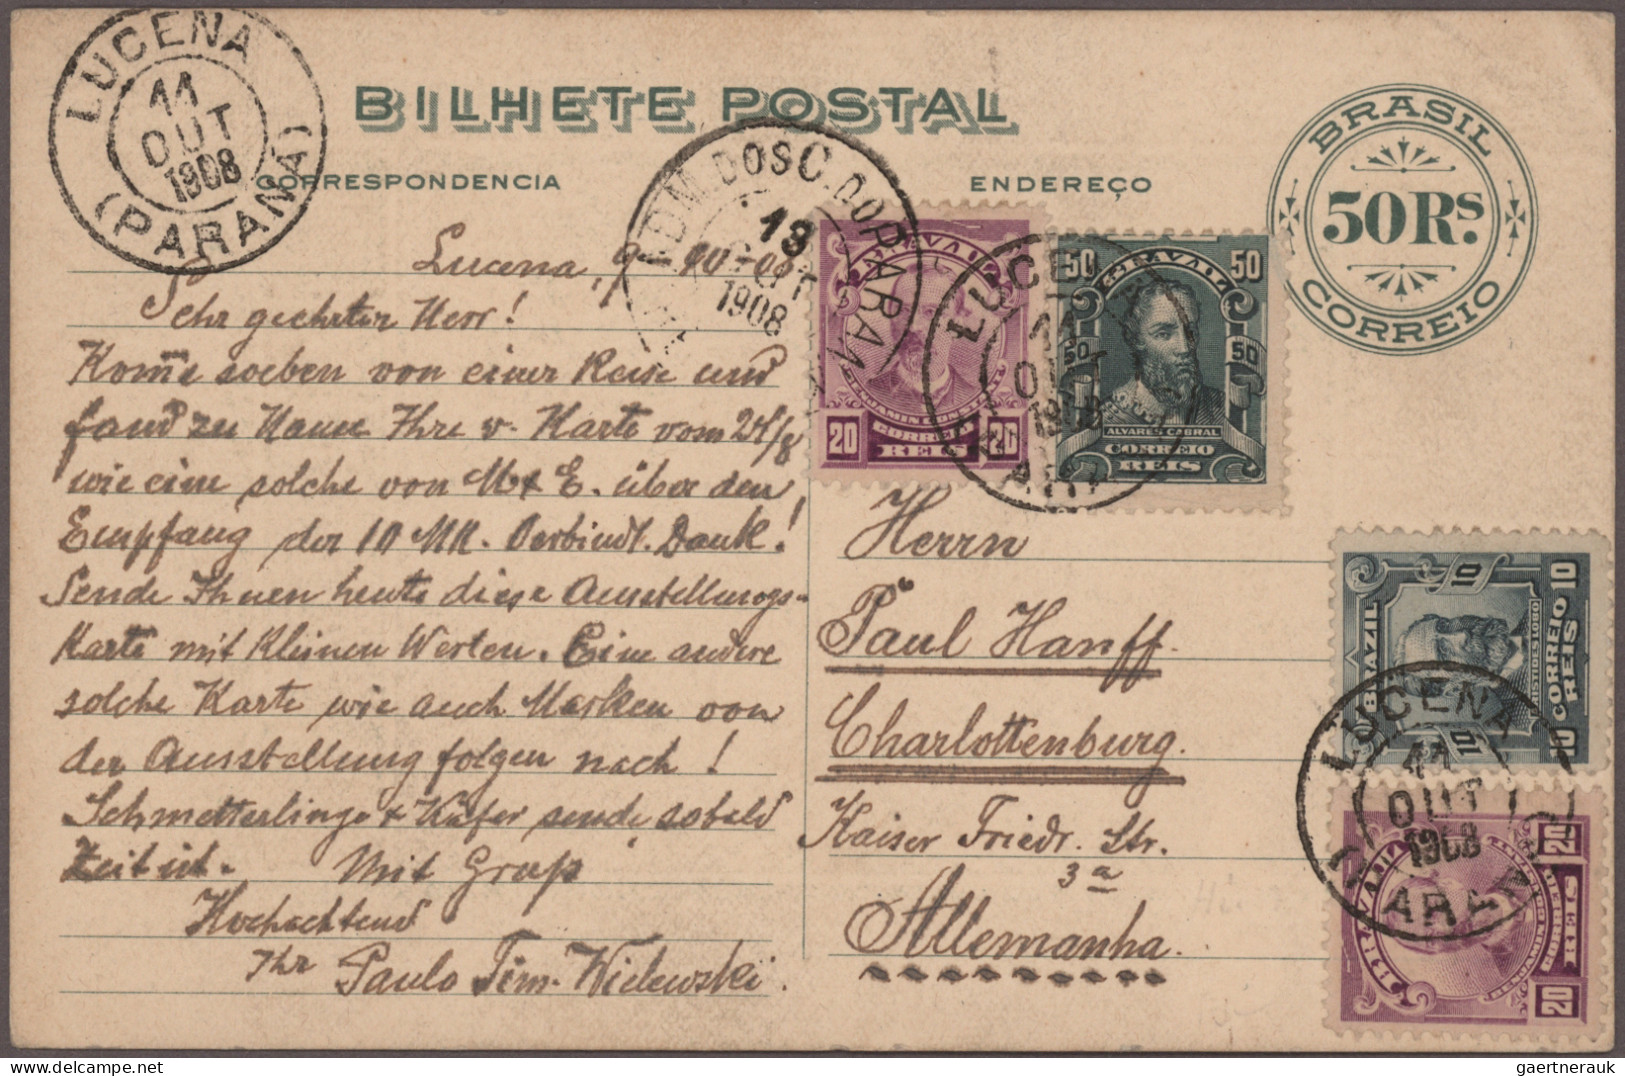 LUCENA
11
OUT
1908
(PARANÁ)
BILHETE POSTAL
CORRESPONDENCIA
ENDEREÇO
BRASIL
50 Rs.
CORREIO
ADM. DOS C. DO PARANÁ
13
OUT
1908
BRAZIL
BENJAMIN CONSTANT
20 CORREIO 20
REIS
LUCENA
11
OUT
1908
PARANÁ
50 BRAZIL 50
50 50
ALVARES CABRAL
CORREIO
REIS
Lucena, 9-10-08
Sehr geehrter Herr!
Kom̅e soeben von einer Reise und
fand zu Hause Ihre w. Karte vom 24/8
wie eine solche von M & E. über den
Empfang der 10 MK. Verbindl. Dank!
Sende Ihnen heute diese Ausstellungs-
Karte mit kleinen Werten. Eine andere
solche Karte wie auch Marken von
der Ausstellung folgen nach!
Schmetterlinge & Käfer sende sobald
Zeit ist. Mit Gruß
Hochachtend
Ihr Paulo Wielewski.
Herrn
Paul Hanff.
Charlottenburg.
Kaiser Friedr. Str.
3a
Allemanha.
10 BRAZIL 10
ARISTIDES LOBO
10 CORREIO 10
REIS
LUCENA
11
OUT
1908
PARANÁ
BRAZIL
BENJAMIN CONSTANT
20 CORREIO 20
REIS
gaertnerauk